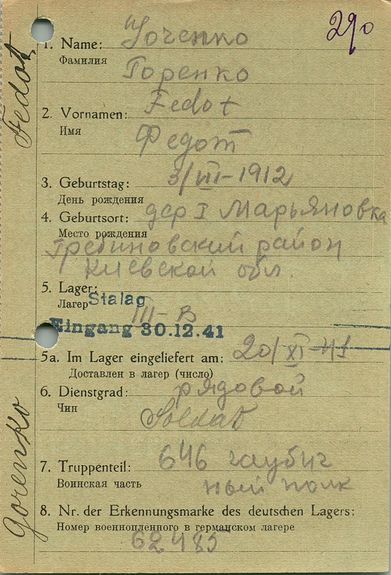 290
1. Name: Goренко
Фамилия Горенко
2. Vornamen: Fedot
Имя Федот
3. Geburtstag: 3/VIII-1912
День рождения
4. Geburtsort: дер I Марьяновка
Место рождения
Гребиновский район
Киевской обл.
5. Lager: Stalag
Лагер III-B
Eingang 30.12.41
5a. Im Lager eingeliefert am: 20/XI-41
Доставлен в лагер (число)
6. Dienstgrad: рядовой
Чин Soldat
7. Truppenteil: 646 гаубич
Воинская часть ный полк
8. Nr. der Erkennungsmarke des deutschen Lagers:
Номер военнопленного в германском лагере
62485
Fedot
Gorenko